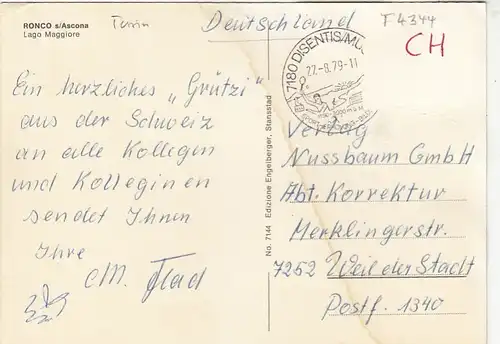 RONCO s/Ascona
Lago Maggiore
Tessin
Deutschland
F 4344
CH
7180 DISENTIS/MU
22.-8.79-11
Ein herzliches „Grützi"
aus der Schweiz
an alle Kollegen
und Kolleginen
sendet Ihnen
Ihre
M.
No. 7144 Edizione Engelberger, Stansstad
Verlag
Nussbaum GmbH
Abt. Korrektur
Merklingerstr.
7252 Weil der Stadt
Postf. 1340